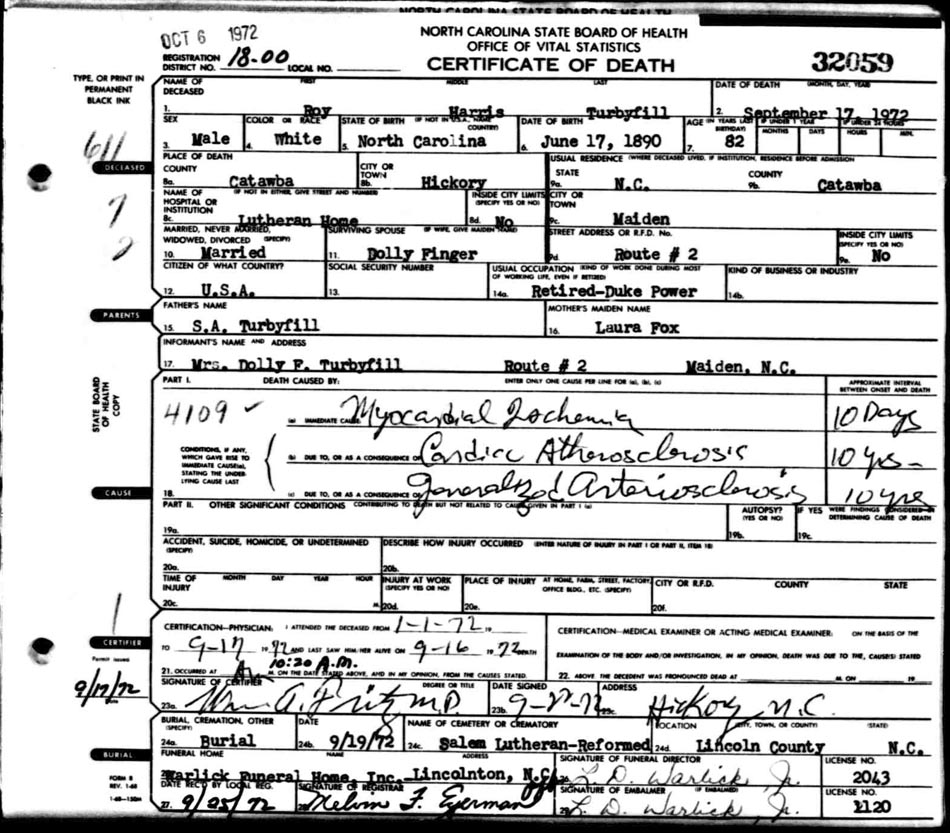 NORTH CAROLINA STATE BOARD OF HEALTH
OCT 6 1972
NORTH CAROLINA STATE BOARD OF HEALTH
OFFICE OF VITAL STATISTICS
CERTIFICATE OF DEATH
32059
REGISTRATION DISTRICT NO. 18-00 LOCAL NO.
TYPE, OR PRINT IN PERMANENT BLACK INK
NAME OF DECEASED FIRST MIDDLE LAST DATE OF DEATH (MONTH, DAY, YEAR)
1. Roy Harris Turbyfill 2. September 17, 1972
SEX COLOR OR RACE STATE OF BIRTH (IF NOT IN U.S.A., NAME COUNTRY) DATE OF BIRTH AGE (IN YEARS LAST BIRTHDAY) IF UNDER 1 YEAR MONTHS DAYS IF UNDER 24 HOURS HOURS MIN.
3. Male 4. White 5. North Carolina 6. June 17, 1890 7. 82
611
DECEASED
PLACE OF DEATH USUAL RESIDENCE (WHERE DECEASED LIVED, IF INSTITUTION, RESIDENCE BEFORE ADMISSION
COUNTY CITY OR TOWN STATE COUNTY
8a. Catawba 8b. Hickory 9a. N.C. 9b. Catawba
NAME OF HOSPITAL OR INSTITUTION (IF NOT IN EITHER, GIVE STREET AND NUMBER) INSIDE CITY LIMITS (SPECIFY YES OR NO) CITY OR TOWN
8c. Lutheran Home 8d. No 9c. Maiden
MARRIED, NEVER MARRIED, WIDOWED, DIVORCED (SPECIFY) SURVIVING SPOUSE (IF WIFE, GIVE MAIDEN NAME) STREET ADDRESS OR R.F.D. No. INSIDE CITY LIMITS (SPECIFY YES OR NO)
10. Married 11. Dolly Finger 9d. Route # 2 9e. No
CITIZEN OF WHAT COUNTRY? SOCIAL SECURITY NUMBER USUAL OCCUPATION (KIND OF WORK DONE DURING MOST OF WORKING LIFE, EVEN IF RETIRED) KIND OF BUSINESS OR INDUSTRY
12. U.S.A. 13. 14a. Retired-Duke Power 14b.
PARENTS
FATHER'S NAME MOTHER'S MAIDEN NAME
15. S.A. Turbyfill 16. Laura Fox
INFORMANT'S NAME AND ADDRESS
17. Mrs. Dolly F. Turbyfill Route # 2 Maiden, N.C.
STATE BOARD OF HEALTH COPY
PART I. DEATH CAUSED BY: ENTER ONLY ONE CAUSE PER LINE FOR (a), (b), (c) APPROXIMATE INTERVAL BETWEEN ONSET AND DEATH
4109 (a) IMMEDIATE CAUSE Myocardial Ischemia 10 Days
CONDITIONS, IF ANY, WHICH GAVE RISE TO IMMEDIATE CAUSE(a), STATING THE UNDERLYING CAUSE LAST
(b) DUE TO, OR AS A CONSEQUENCE OF Cardiac Atherosclerosis 10 yrs-
CAUSE
18. (c) DUE TO, OR AS A CONSEQUENCE OF Generalized Arteriosclerosis 10 yrs
PART II. OTHER SIGNIFICANT CONDITIONS CONTRIBUTING TO DEATH BUT NOT RELATED TO CAUSE GIVEN IN PART I (a) AUTOPSY? (YES OR NO) IF YES WERE FINDINGS CONSIDERED IN DETERMINING CAUSE OF DEATH
19a. 19b. 19c.
ACCIDENT, SUICIDE, HOMICIDE, OR UNDETERMINED (SPECIFY) DESCRIBE HOW INJURY OCCURRED (ENTER NATURE OF INJURY IN PART I OR PART II, ITEM 18)
20a. 20b.
TIME OF INJURY MONTH DAY YEAR HOUR INJURY AT WORK (SPECIFY YES OR NO) PLACE OF INJURY AT HOME, FARM, STREET, FACTORY, OFFICE BLDG., ETC. (SPECIFY) CITY OR R.F.D. COUNTY STATE
20c. M. 20d. 20e. 20f.
CERTIFIER
CERTIFICATION—PHYSICIAN: I ATTENDED THE DECEASED FROM 1-1-72 19
TO 9-17 1972 AND LAST SAW HIM/HER ALIVE ON 9-16 1972 DEATH
10:20 A.M.
21. OCCURRED AT M. ON THE DATE STATED ABOVE, AND IN MY OPINION, FROM THE CAUSES STATED.
CERTIFICATION—MEDICAL EXAMINER OR ACTING MEDICAL EXAMINER: ON THE BASIS OF THE
EXAMINATION OF THE BODY AND/OR INVESTIGATION, IN MY OPINION, DEATH WAS DUE TO THE, CAUSE(S) STATED
22. ABOVE. THE DECEDENT WAS PRONOUNCED DEAD AT M. ON 19
Permit issued
9/17/72
Date
SIGNATURE OF CERTIFIER DEGREE OR TITLE DATE SIGNED ADDRESS
23a. Wm A. Fritz M.D. 23b. 23c. Hickory N.C.
BURIAL, CREMATION, OTHER (SPECIFY) DATE NAME OF CEMETERY OR CREMATORY LOCATION (CITY, TOWN, OR COUNTY) (STATE)
24a. Burial 24b. 9/19/72 24c. Salem Lutheran-Reformed 24d. Lincoln County N.C.
BURIAL
FUNERAL HOME NAME ADDRESS SIGNATURE OF FUNERAL DIRECTOR LICENSE NO.
Warlick Funeral Home, Inc. Lincolnton, N.C. L. D. Warlick, Jr. 2043
FORM 8
REV. 1-68
DATE REC'D BY LOCAL REG. SIGNATURE OF REGISTRAR SIGNATURE OF EMBALMER (IF EMBALMED) LICENSE NO.
27. 9/25/72 28. Melvin F. Eyerman 29. L. D. Warlick, Jr. 1120